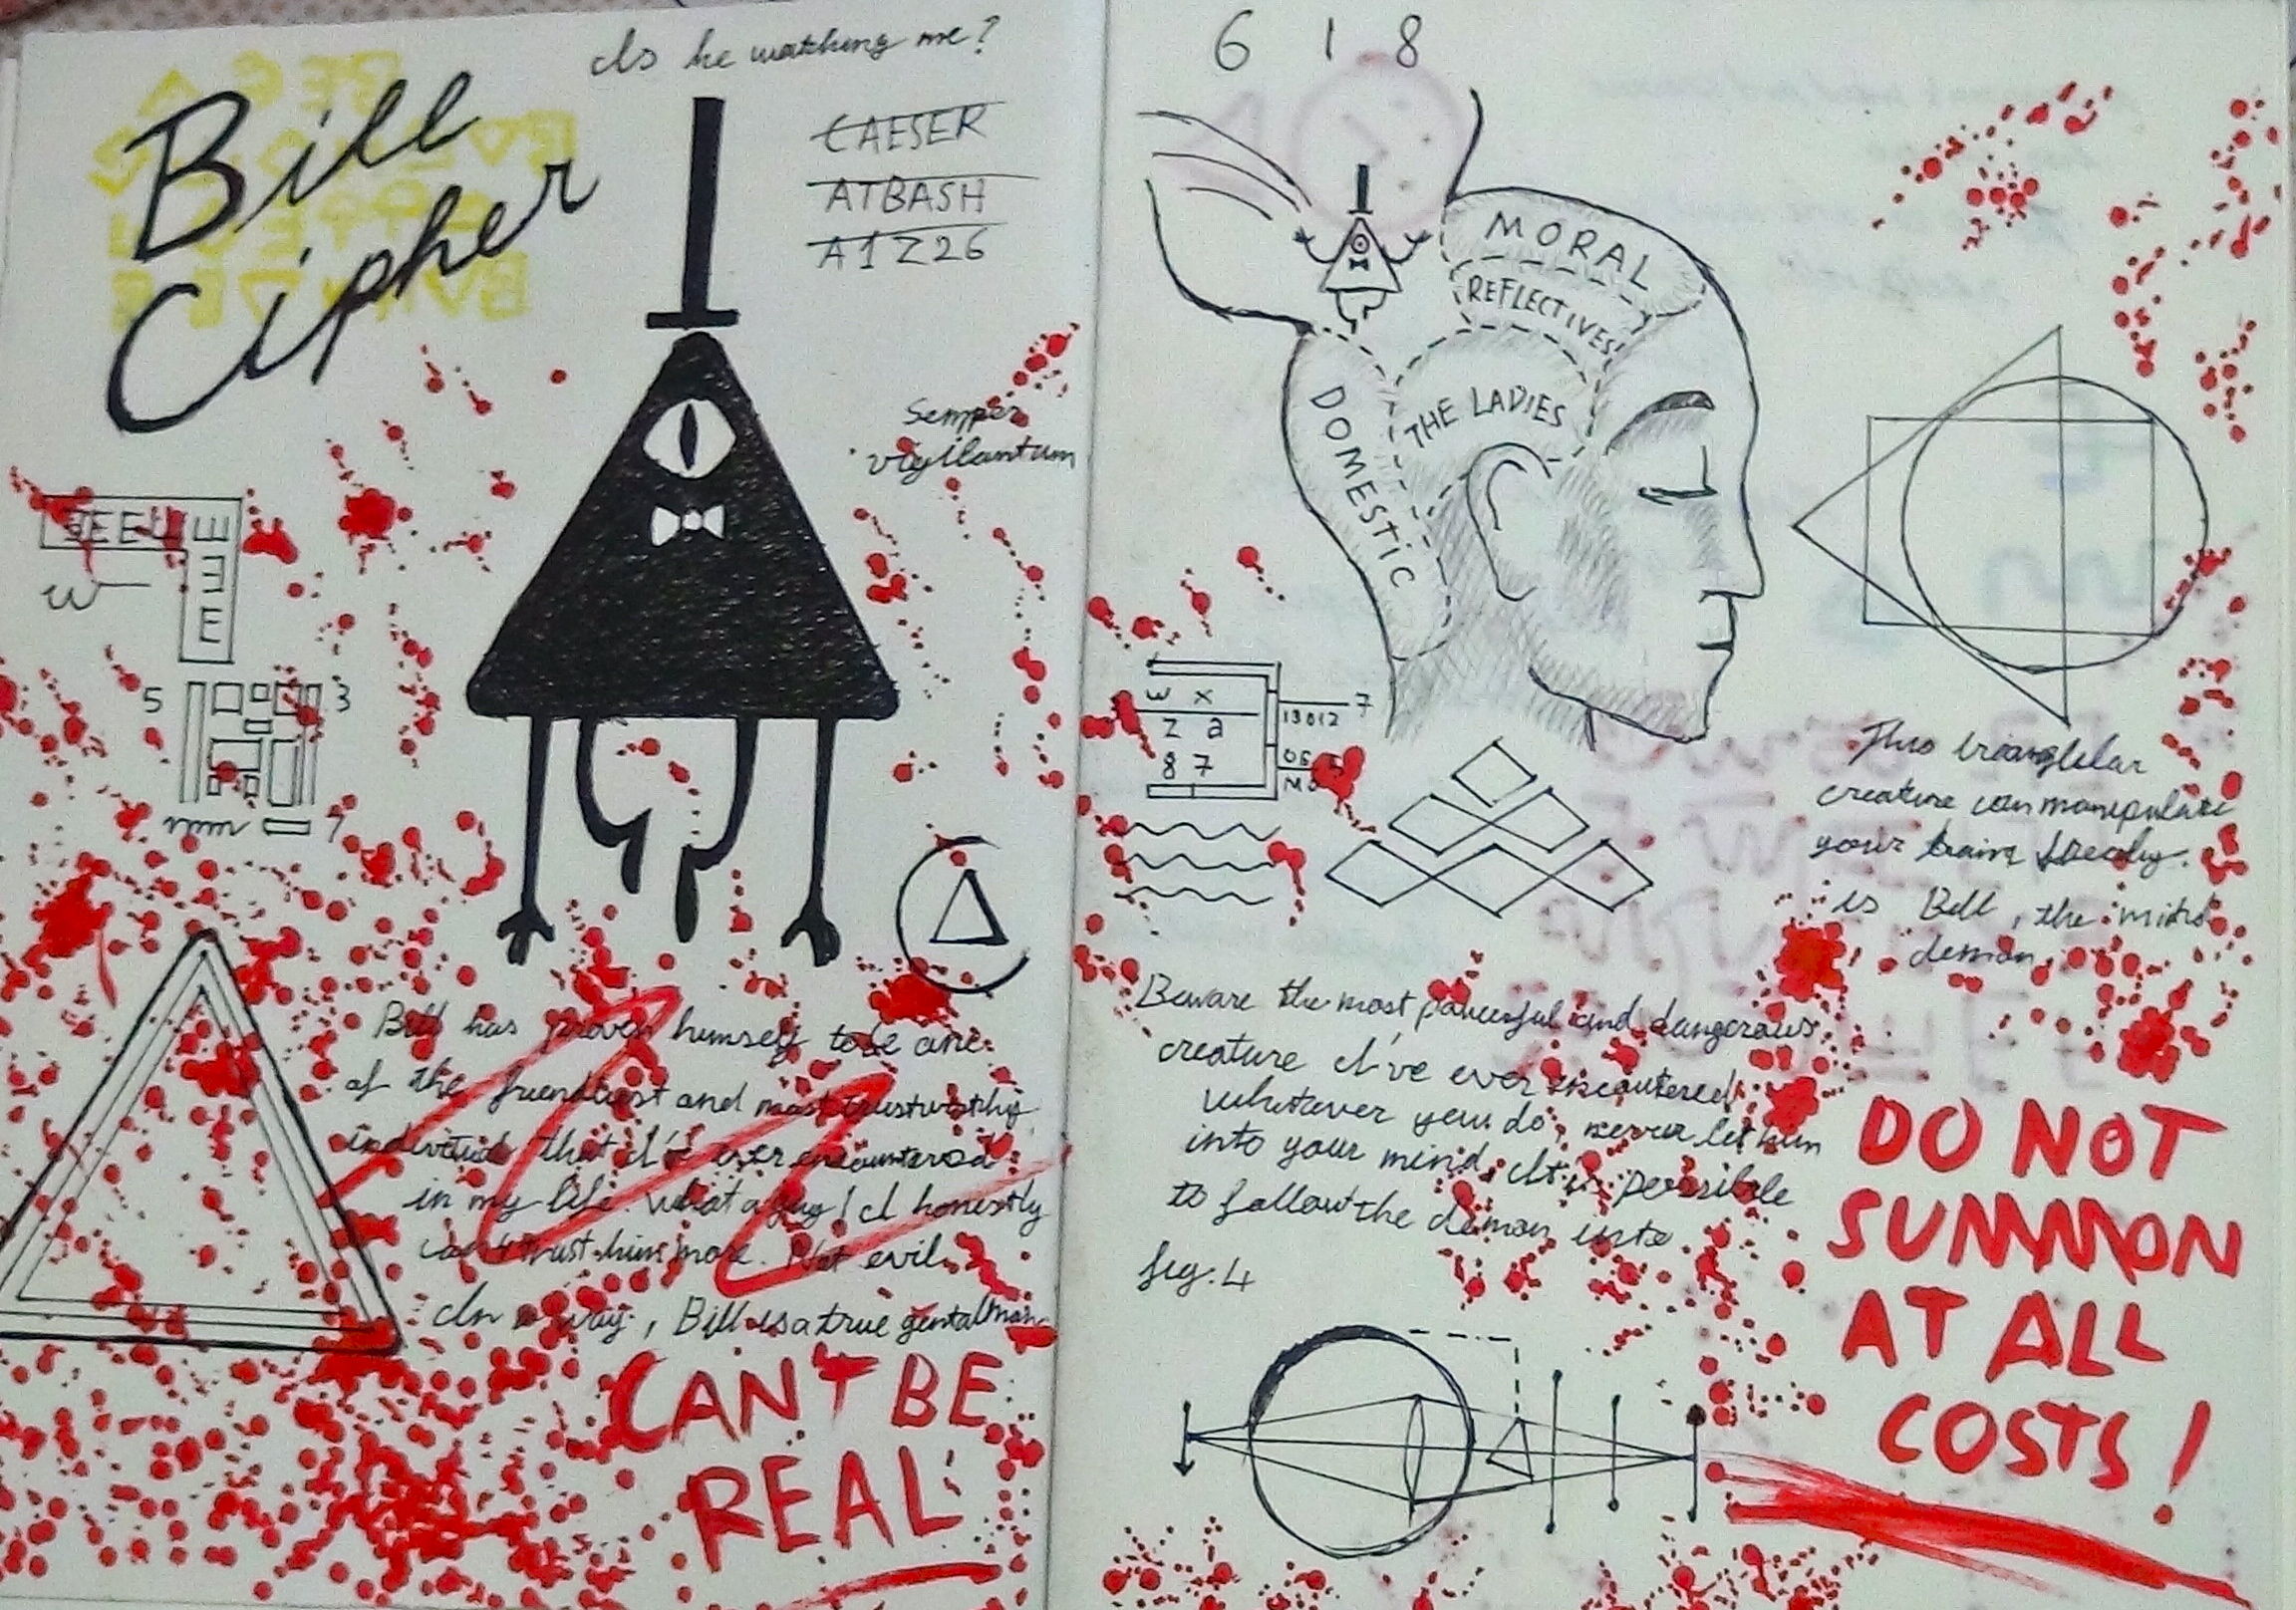 Is he watching me?
Bill
Cipher
CAESER
ATBASH
A1Z26
Semper
vigilantum
W
5 3
rpm 7
Bill has proven himself to be one
of the friendliest and most trustworthy
individual that I've ever encountered
in my life. What a guy! I honestly
can't trust him more. Not evil.
In a way, Bill is a true gentalman
CAN'T BE
REAL
6 1 8
MORAL
REFLECTIVES
THE LADIES
DOMESTiC
W X 7
Z a 13012
8 7
This triangular
creature can manipulate
your brain freely.
is Bill, the mind
demon.
Beware the most powerful and dangerous
creature I've ever encoutered
whatever you do, never let him
into your mind. It is possible
to follow the demon into
fig. 4
DO NOT
SUMMON
AT ALL
COSTS!